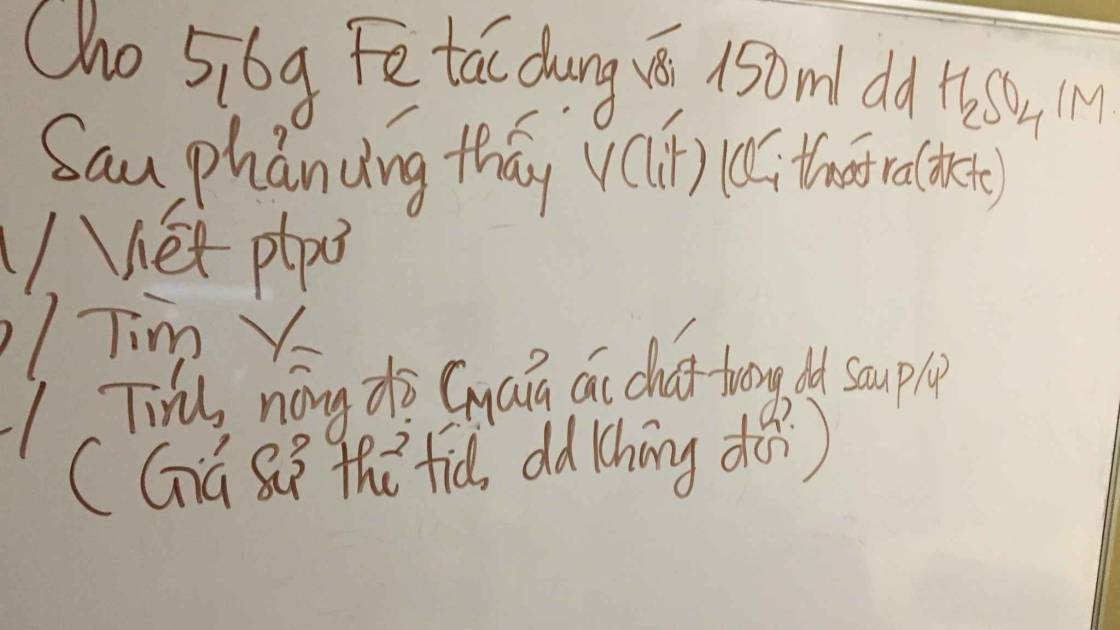 Cho 5,6g Fe tác dụng với 150ml dd H₂SO₄ 1M.
Sau phản ứng thấy V(lít) khí thoát ra (đktc)
/ Viết ptpư
/ Tìm V
/ Tính nồng độ CM của các chất trong dd sau p/ư
(Giả sử thể tích dd không đổi)